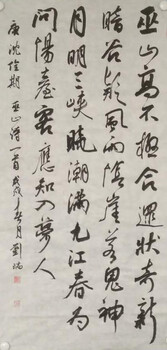 巫山高不極合遝狀奇新
暗谷疑風雨陰崖若鬼神
月明三峽曉潮滿九江春為
問陽臺客應知入夢人
唐沈佺期巫山詩一首戊戌年春月劉